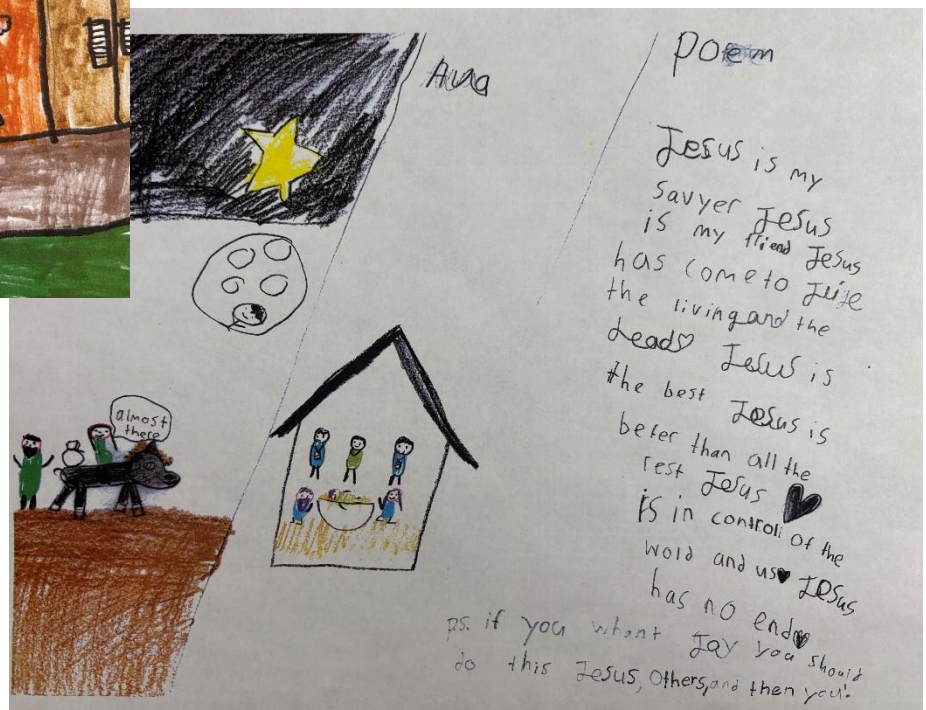 Poem
Aua
Jesus is my
savyer Jesus
is my friend Jesus
has come to juje
the living and the
dead♡ Jesus is
the best Jesus is
beter than all the
rest Jesus ♥
is in controll of the
wold and us♥ Jesus
has no end♥
ps. if you whant Joy you should
do this Jesus, Others, and then you!
almost
there